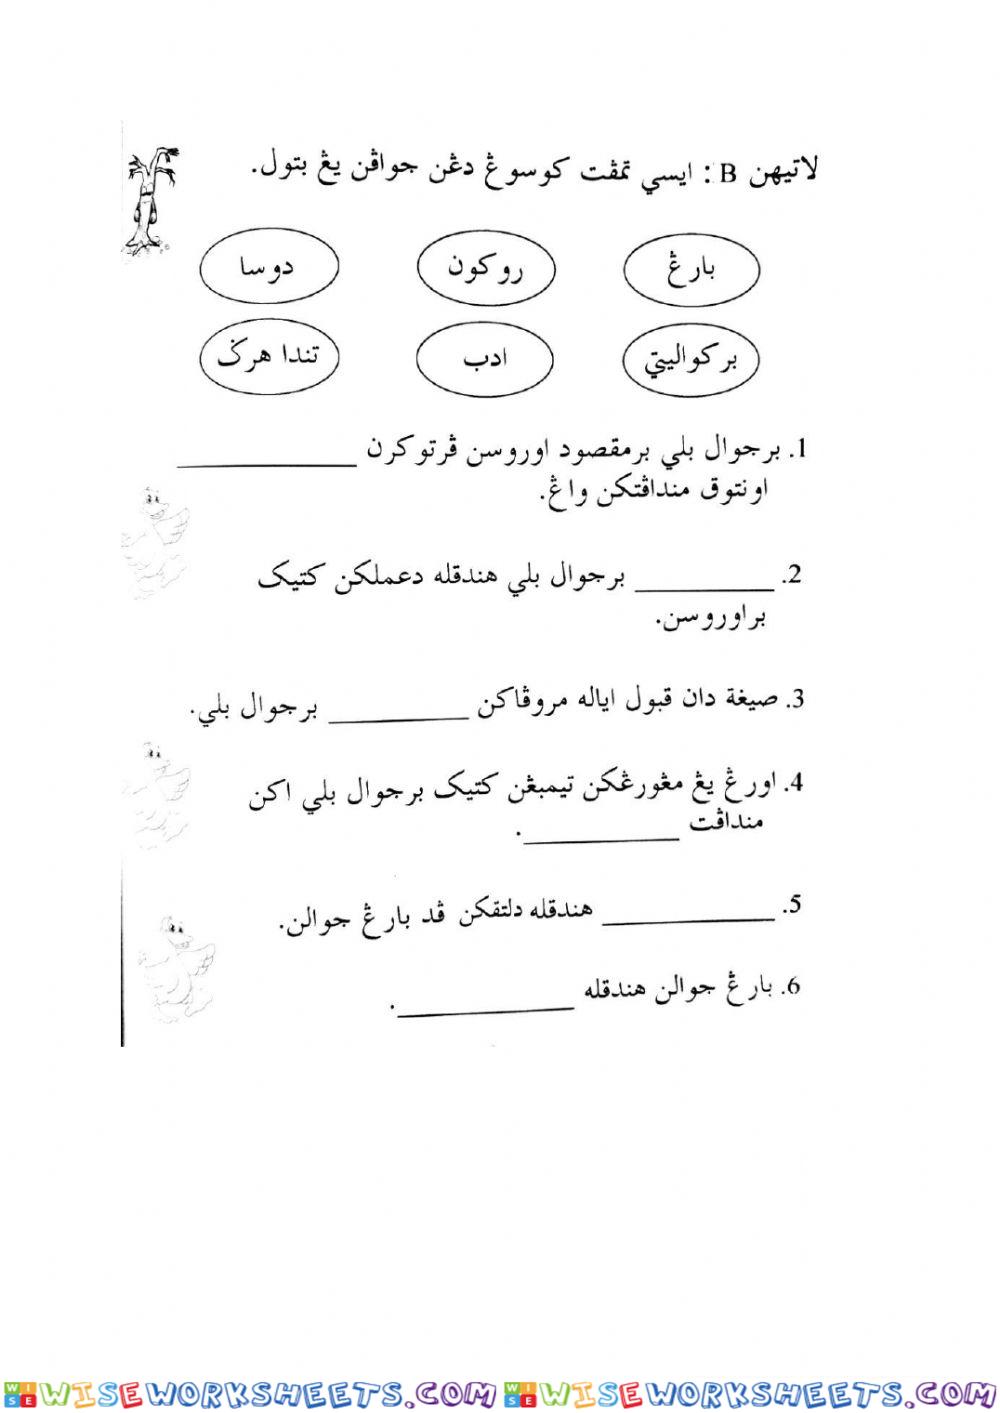 لاتيهن B : ايسي تمڤت كوسوڠ دڠن جواڤن يڠ بتول.
بارڠ
روكون
دوسا
بركواليتي
ادب
تندا هرݢ
1. برجوال بلي برمقصود اوروسن ڤرتوكرن ____________
اونتوق منداڤتكن واڠ.
2. __________ برجوال بلي هندقله دعملكن كتيک
براوروسن.
3. صيغة دان قبول اياله مروڤاكن __________ برجوال بلي.
4. اورڠ يڠ مڠورڠكن تيمبڠن كتيک برجوال بلي اكن
منداڤت ___________.
5. ____________ هندقله دلتقكن ڤد بارڠ جوالن.
6. بارڠ جوالن هندقله ____________.
WISEWORKSHEETS.COM WISEWORKSHEETS.COM